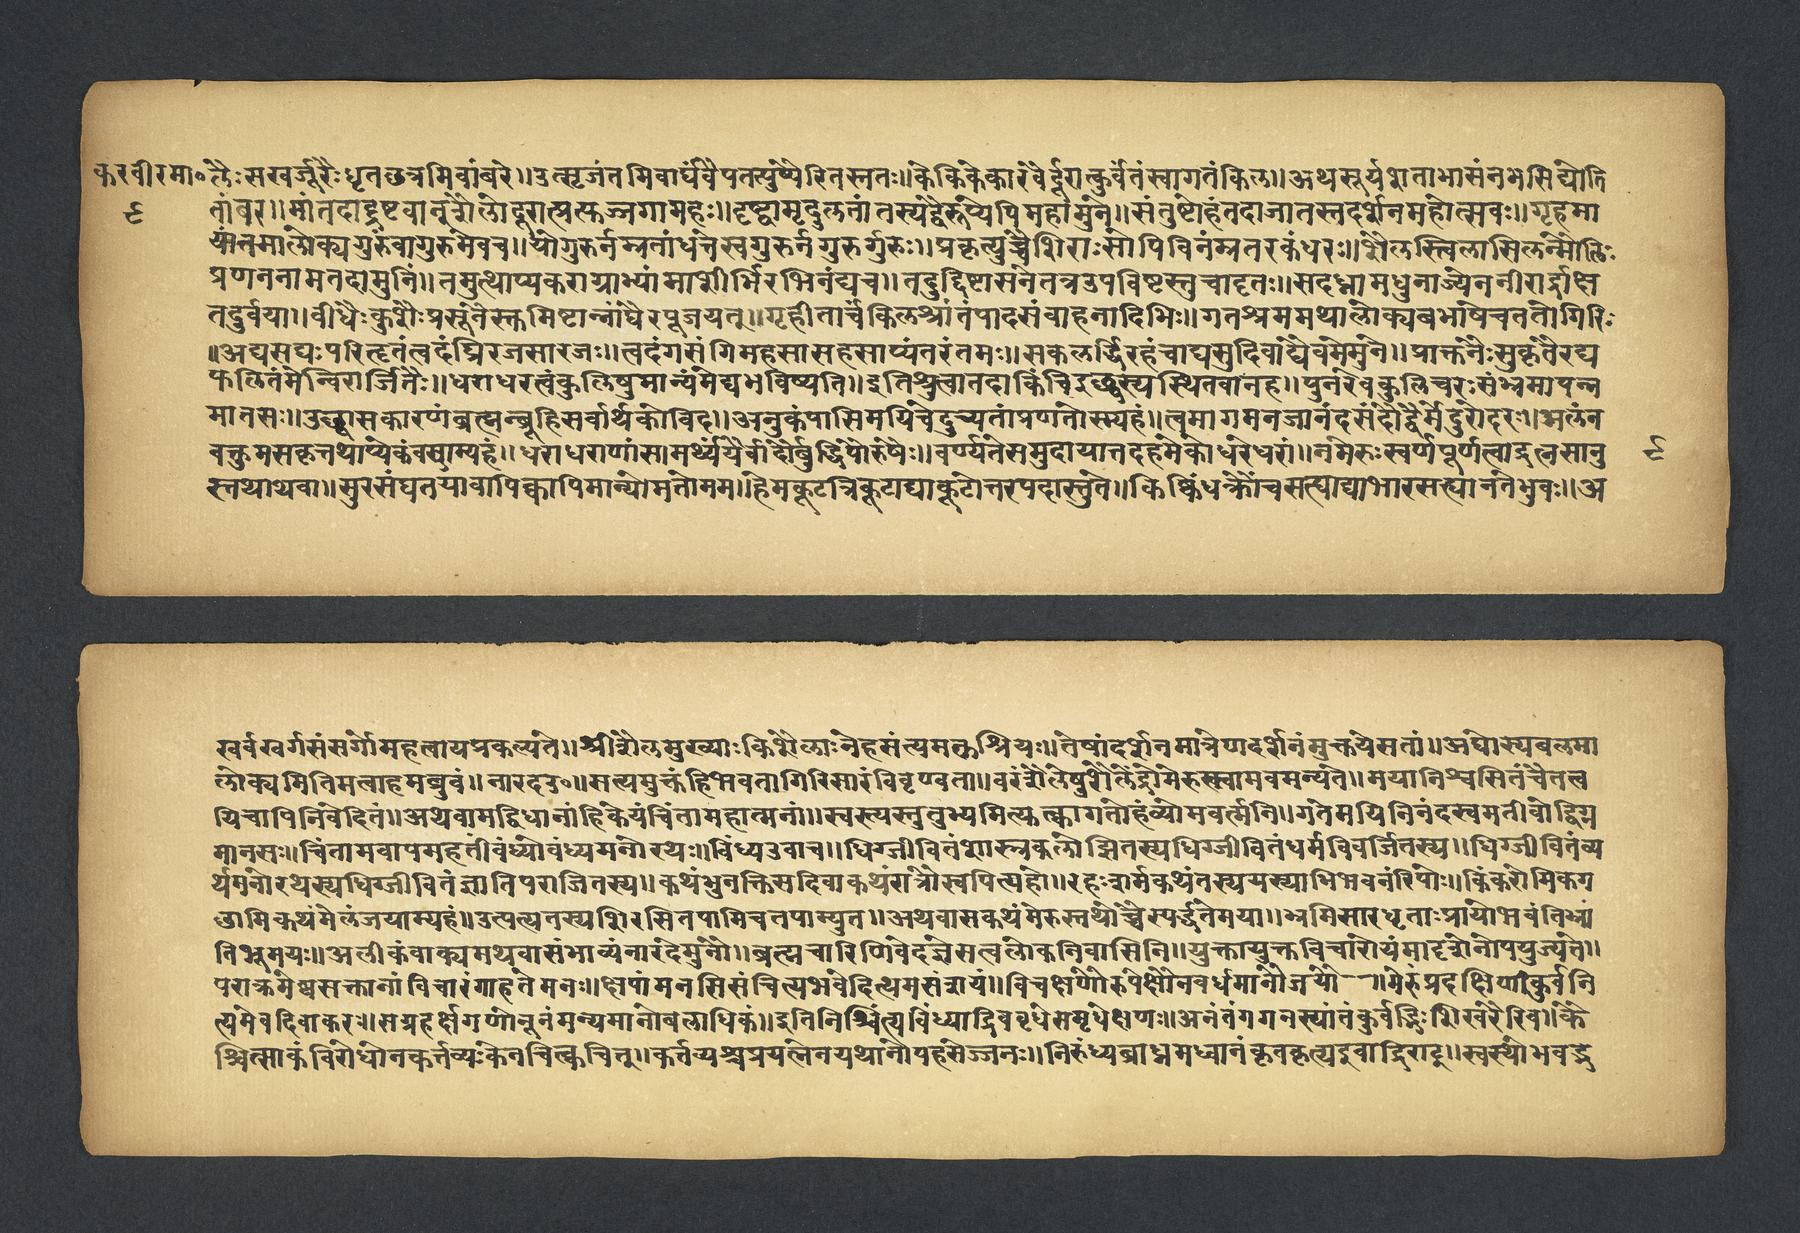 करवीरमा० लैःसखर्जूरैःधृतछत्रमिवांबरे॥उत्सृजंतमिवार्घंवैपतत्पुष्पैरितस्ततः॥केकिकेकारवैर्दूरात्कुर्वंतंस्वागतंकिल॥अथसूर्यशताभासंनभसिद्योति
९ तांबर॥मांतदादृष्टवान्शैलोदूरात्प्रत्युज्जगामहः॥दृष्ट्वामृदुलतांतस्यद्वैरूप्येपिमहामुने॥संतुष्टोहंतदाजातस्तद्दर्शनमहोत्सवः॥गृहमा
यांतमालोक्यगुरुंवागुरुमेवच॥योगुरुर्नम्रतांधत्तेसगुरुर्नगुरुर्गुरुः॥प्रकृत्युच्चैशिराःसोपिविनंम्रतरकंधरः॥शैलस्त्विलासिलन्मौलिः
प्रणननामतदामुनिं॥तमुत्थाप्यकराग्राभ्यांमाशीर्भिरभिनंद्यच॥तदुद्दिष्टासनेतत्रउपविष्टस्तुचादृतः॥सदध्नामधुनाज्येननीरार्द्राक्ष
तदुर्वया॥व्रीधैःकुशैःप्रसूनैस्तमिष्टान्नांघैरपूजयत्॥गृहीतार्चंकिलश्रांतंपादसंवाहनादिभिः॥गतश्रममथालोक्यबभाषेचततोगिरिः
॥अद्यसद्यःपरितृतंत्वदंघ्रिरजसारजः॥त्वदंगसंगिमहसासहसाप्यंतरंतमः॥सकलर्द्धिरहंचाद्यसुदिवाद्यैवमेमुने॥प्राक्तनैःसुकृतैरद्य
फलितंमेन्चिरार्जितैः॥धराधरत्वंकुलिषुमान्यंमेद्यभविष्यति॥इतिश्रुत्वातदाकिंचिदुच्छ्वस्यस्थितवानहं॥पुनरेवकुलिचरःसंभ्रमापन्न
मानसः॥उच्छ्वासकारणंब्रह्मन्ब्रूहिसर्वार्थकोविद॥अनुकंपासिमयिचेदुच्यतांप्रणतोस्म्यहं॥त्वमागमनजानंदसंदोहैर्मेदुरोदरः॥अलंन
वक्तुमसकृत्तथाप्येकंवच्याम्यहं॥धराधराणांसामर्थ्यंयैर्वादोर्वुद्धिंपोरुषैः॥वर्ण्यतेसमुदायात्तदहमेकोधरेधरां॥नमेरुःस्वर्णपूर्णत्वाद्रत्नसानु ९
स्तथाथवा॥सुरसंघतयावापिक्वापिमान्योमतोमम॥हेमकूटत्रिकूटाद्याकूटोत्तरपदास्तुते॥किष्किंधक्रौंचसह्याद्याभारसह्यानतेभुवः॥अ
खर्वखर्गसंसर्गोमहत्वायप्रकल्पते॥श्रीशैलमुख्याःकिंशैलाःनेहसंत्यमलश्रियः॥तेषांदर्शनमात्रेणदर्शनंमुक्तयेसतां॥अद्यास्यबलमा
लोक्यमितिमत्वाहमब्रुवं॥नारदउ०॥सत्यमुक्तंहिभवतागिरिसारंविवृण्वता॥वरंशैलेषुशैलेंद्रोमेरुस्त्वामवमन्यते॥मयानिश्वसितंचैतत्व
यिचापिनिवेदितं॥अथवामद्विधानांहिकेयंचिंतामहात्मनां॥स्वस्त्यस्तुतुभ्यमित्युक्त्वागतोहंव्योमवर्त्मनि॥गतेमयिनिनंदस्वमतीवोद्विग्न
मानसः॥चिंतामवापमहतीवंध्योवंध्यमनोरथः॥विंध्यउवाच॥धिग्जीवितंशास्त्रकलोझितस्यधिग्जीवितंधर्मविवर्जितस्य॥धिग्जीवितंव्य
र्थमनोरथस्यधिग्जीवितंज्ञातिपराजितस्य॥कथंभुनक्तिसदिवाकथंरात्रौस्वपित्यहो॥रहःशर्मकथंतस्ययस्याभिभवनंरिपोः॥किंकरोमिकग
छामिकथंमेलंजयाम्यहं॥उत्पत्यतस्यशिरसितपामिचतपाम्युत॥अथवासकथंमेरुस्तथोच्चैस्पर्द्धतेमया॥भ्रमिसारधृताःप्रायोभवंतिभ्रां
तिभूमयः॥अलीकंवाक्यमथवासंभाव्यंनारदेमुनौ॥ब्रह्मचारिणिवेदज्ञेसत्वलोकनिवासिनि॥युक्तायुक्तविचारोयंमादृशेनोपयुज्यते॥
पराक्रमेष्वसक्तानांविचारंगाहतेमनः॥क्षोपांमनसिसंचिंत्यभवेदित्थमसंशयं॥विचक्षणोरुपेक्षोनवर्धमानौजयौ--॥मेरुंप्रदक्षिणीकुर्वंनि
त्यमेवदिवाकरः॥सग्रहर्क्षगणोनूनंमन्यमानोबलाधिकं॥इतिनिश्चिंत्यविंध्याद्रिववृधेसमृधेक्षणः॥अनंतंगगनस्यांतंकुर्वद्भिःशिखरैरिव॥कै
श्चित्साकंविरोधोनकर्तव्यःकेनचित्क्वचित्॥कर्त्तव्यश्चप्रयत्नेनयथानोपहसेज्जनः॥निरुंध्यब्राध्नमध्वानंकृतकृत्यइवाद्रिराट्॥स्वस्थोभवद्भ